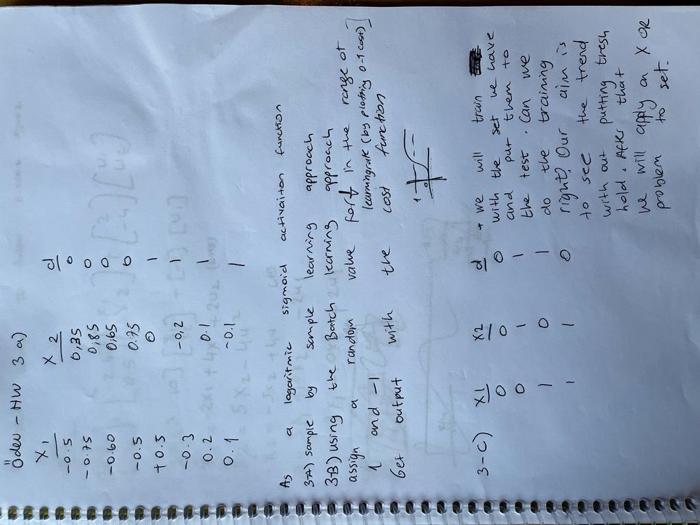 Ödev - HW 3 a)
X1 X2 d
-0.5 0,35 0
-0.75 0,85 0
-0.60 0,65 0
-0.5 0.75 0
+0.5 0 1
-0.3 -0,2 1
0.2 0.1 1
0.1 -0.1 1
As a logaritmic sigmoid activaiton function
3-A) sample by sample learning approach
3-B) using the Batch learning approach
assign a random value for in the range of
1 and -1 learningrate (by plotting 0-1 cost)]
Get output with the cost function
3-C) X1 X2 d
0 0 0
0 1 1
1 0 1
1 1 0
+ we will train
with the set we have
and put them to
the test. Can we
do the training
right? Our aim is
to see the trend
with out putting tresh
hold. After that
we will apply on X OR
problem to set.